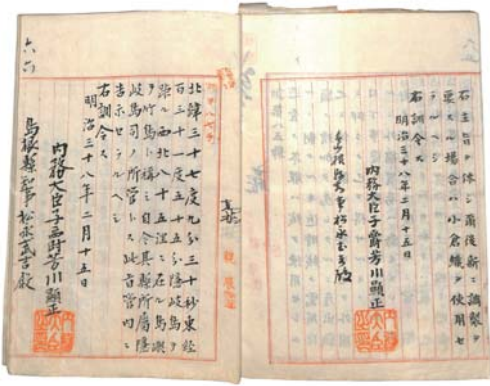 右主旨ヲ体シ爾後新ニ調製ヲ
要スル場合ハ小倉織ヲ使用セ
ラルヘシ
右訓令ス
明治三十八年二月十五日
内務大臣子爵芳川顕正
島根縣知事松永武吉殿
北緯三十七度九分三十秒東経
百三十一度五十五分隠岐島ヲ
距ル西北八十五浬ニ在ル島嶼
ヲ竹島ト稱シ自今其縣所属隠
岐島司ノ所管トス此旨管内ニ
告示セラルヘシ
右訓令ス
明治三十八年二月十五日
内務大臣子爵芳川顕正
島根縣知事松永武吉殿
六六